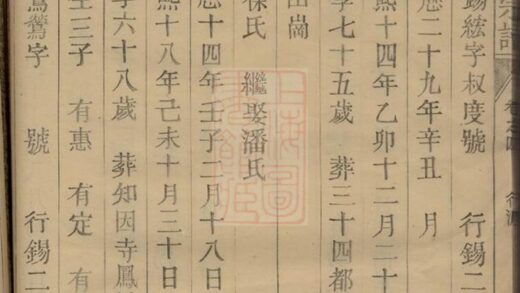 錫絃字叔度號 行錫二
厯二十九年辛丑 月
熙十四年乙卯十二月二十
享七十五歲 葬三十四都
山崗
氏 繼娶潘氏
厯十四年壬子二月十八日
熙十八年己未十月三十日
享六十八歲 葬知因寺鳳
生三子 有惠 有定 有
字 號 行錫二
上海圖書館藏